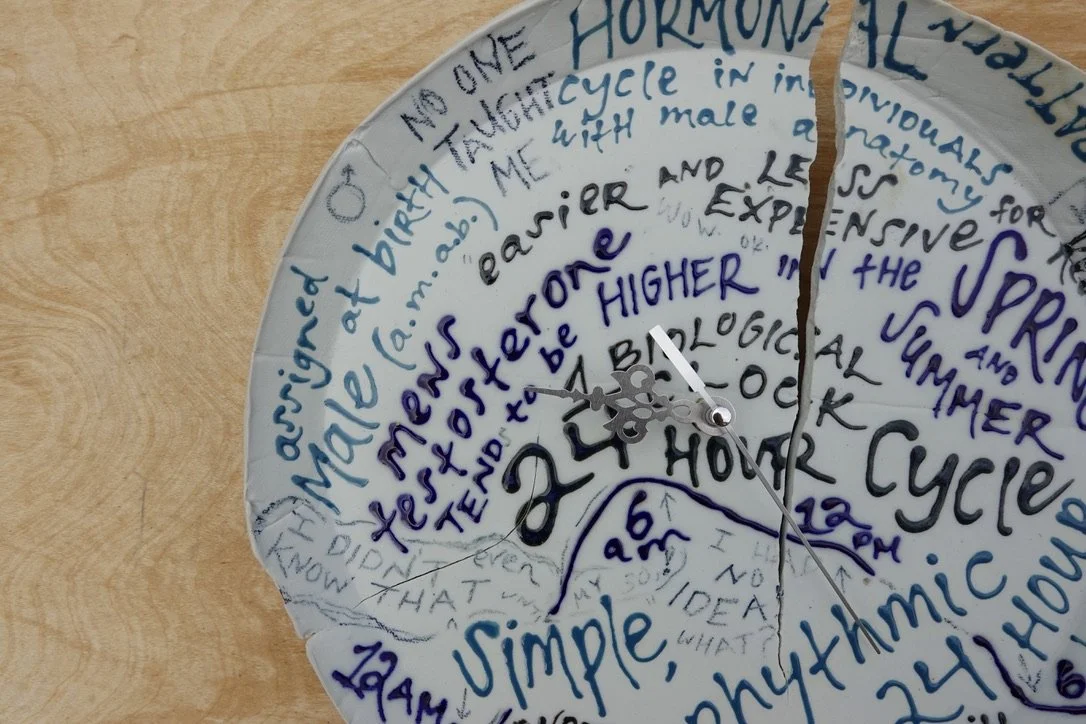 HORMONAL PATTERN
NO ONE
TAUGHT
ME
cycle in inDIVIDUALS
with male anatomy
♂
assigned
Male at birth
(a.m.a.b.)
easier AND LESS
EXPENSIVE for
WOW. OK.
mens
testosterone
TEND to be HIGHER inN the
SPRING
AND
SUMMER
A BIOLOGICAL
CLOCK
24 HOUR Cycle
6
am
12
PM
I DIDN'T even
KNOW THAT
MY SON
I HAD
NO
IDEA
WHAT?
Simple,
rhythmic
24 HOUR
12 AM
6